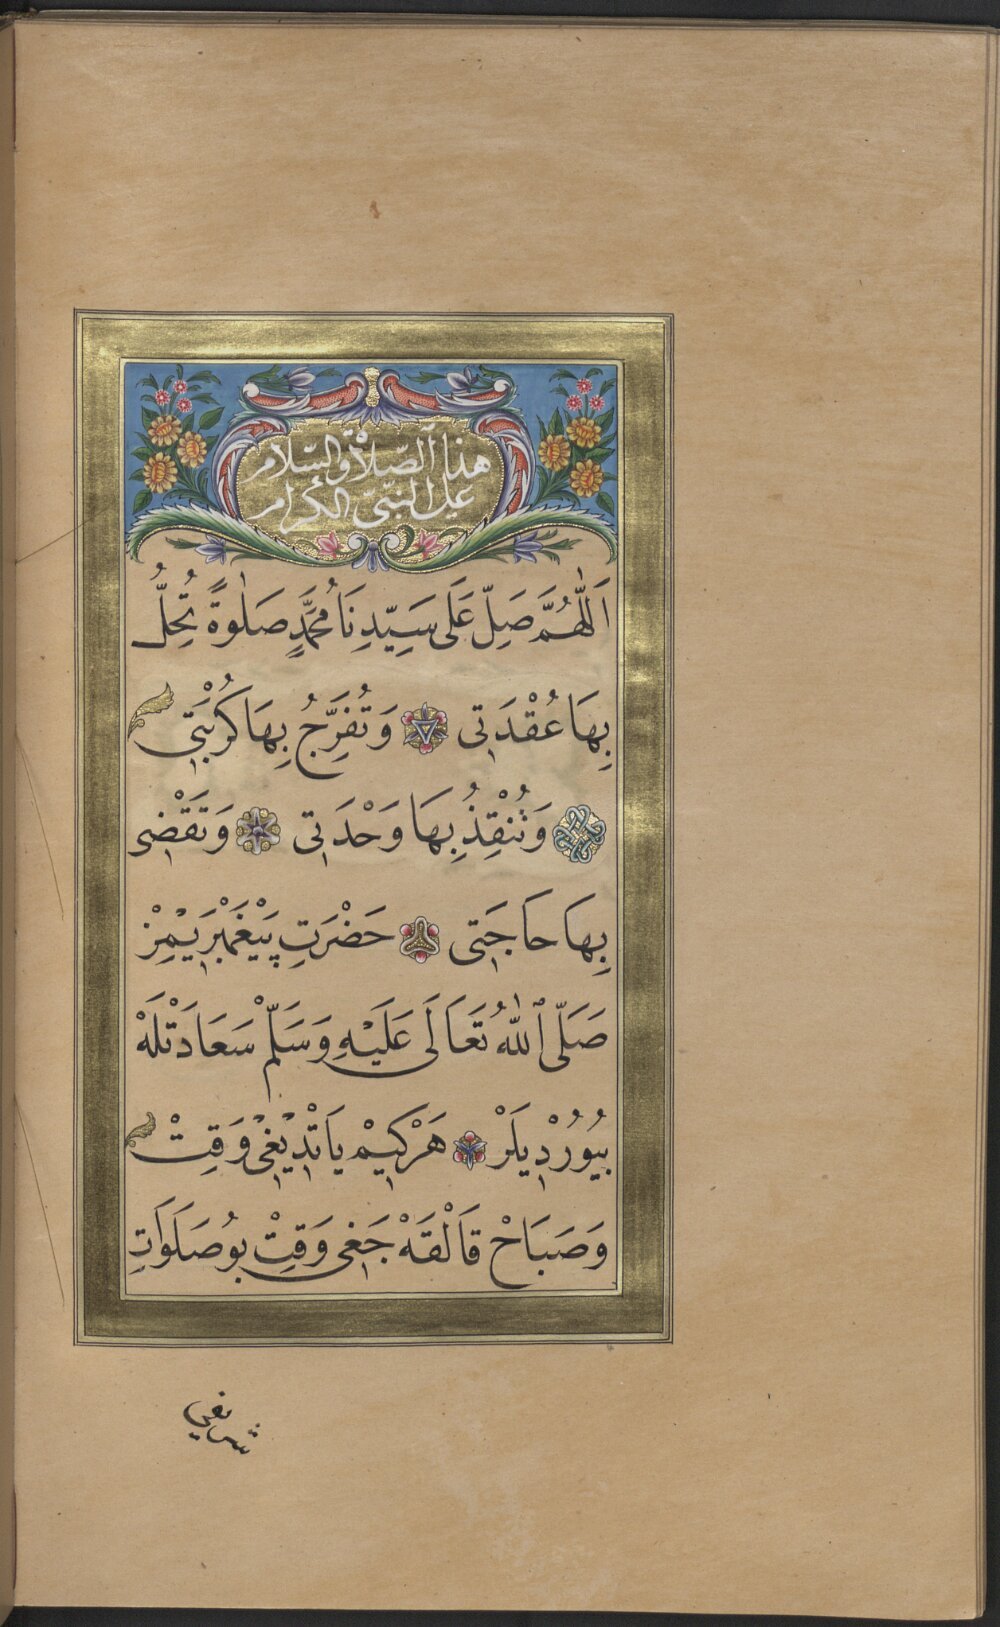 هذا الصلاة والسلام
على النبي الكرام
اَللّٰهُمَّ صَلِّ عَلَى سَيِّدِنَا مُحَمَّدٍ صَلٰوةً تُحِلُّ
بِهَا عُقْدَتِي وَتُفَرِّجُ بِهَا كُرْبَتِي
وَتُنْقِذُ بِهَا وَحْدَتِي وَتَقْضِي
بِهَا حَاجَتِي حَضْرَتِ پَيْغَمْبَرِيمِزْ
صَلَّى ٱللّٰهُ تَعَالَى عَلَيْهِ وَسَلَّمْ سَعَادَتْلَهْ
بُيُورْدِيلَرْ هَرْكِيمْ يَاتْدِيغِي وَقِتْ
وَصَبَاحْ قَالْقَهْ جَغِي وَقِتْ بُو صَلَوَاتِ
شريفي